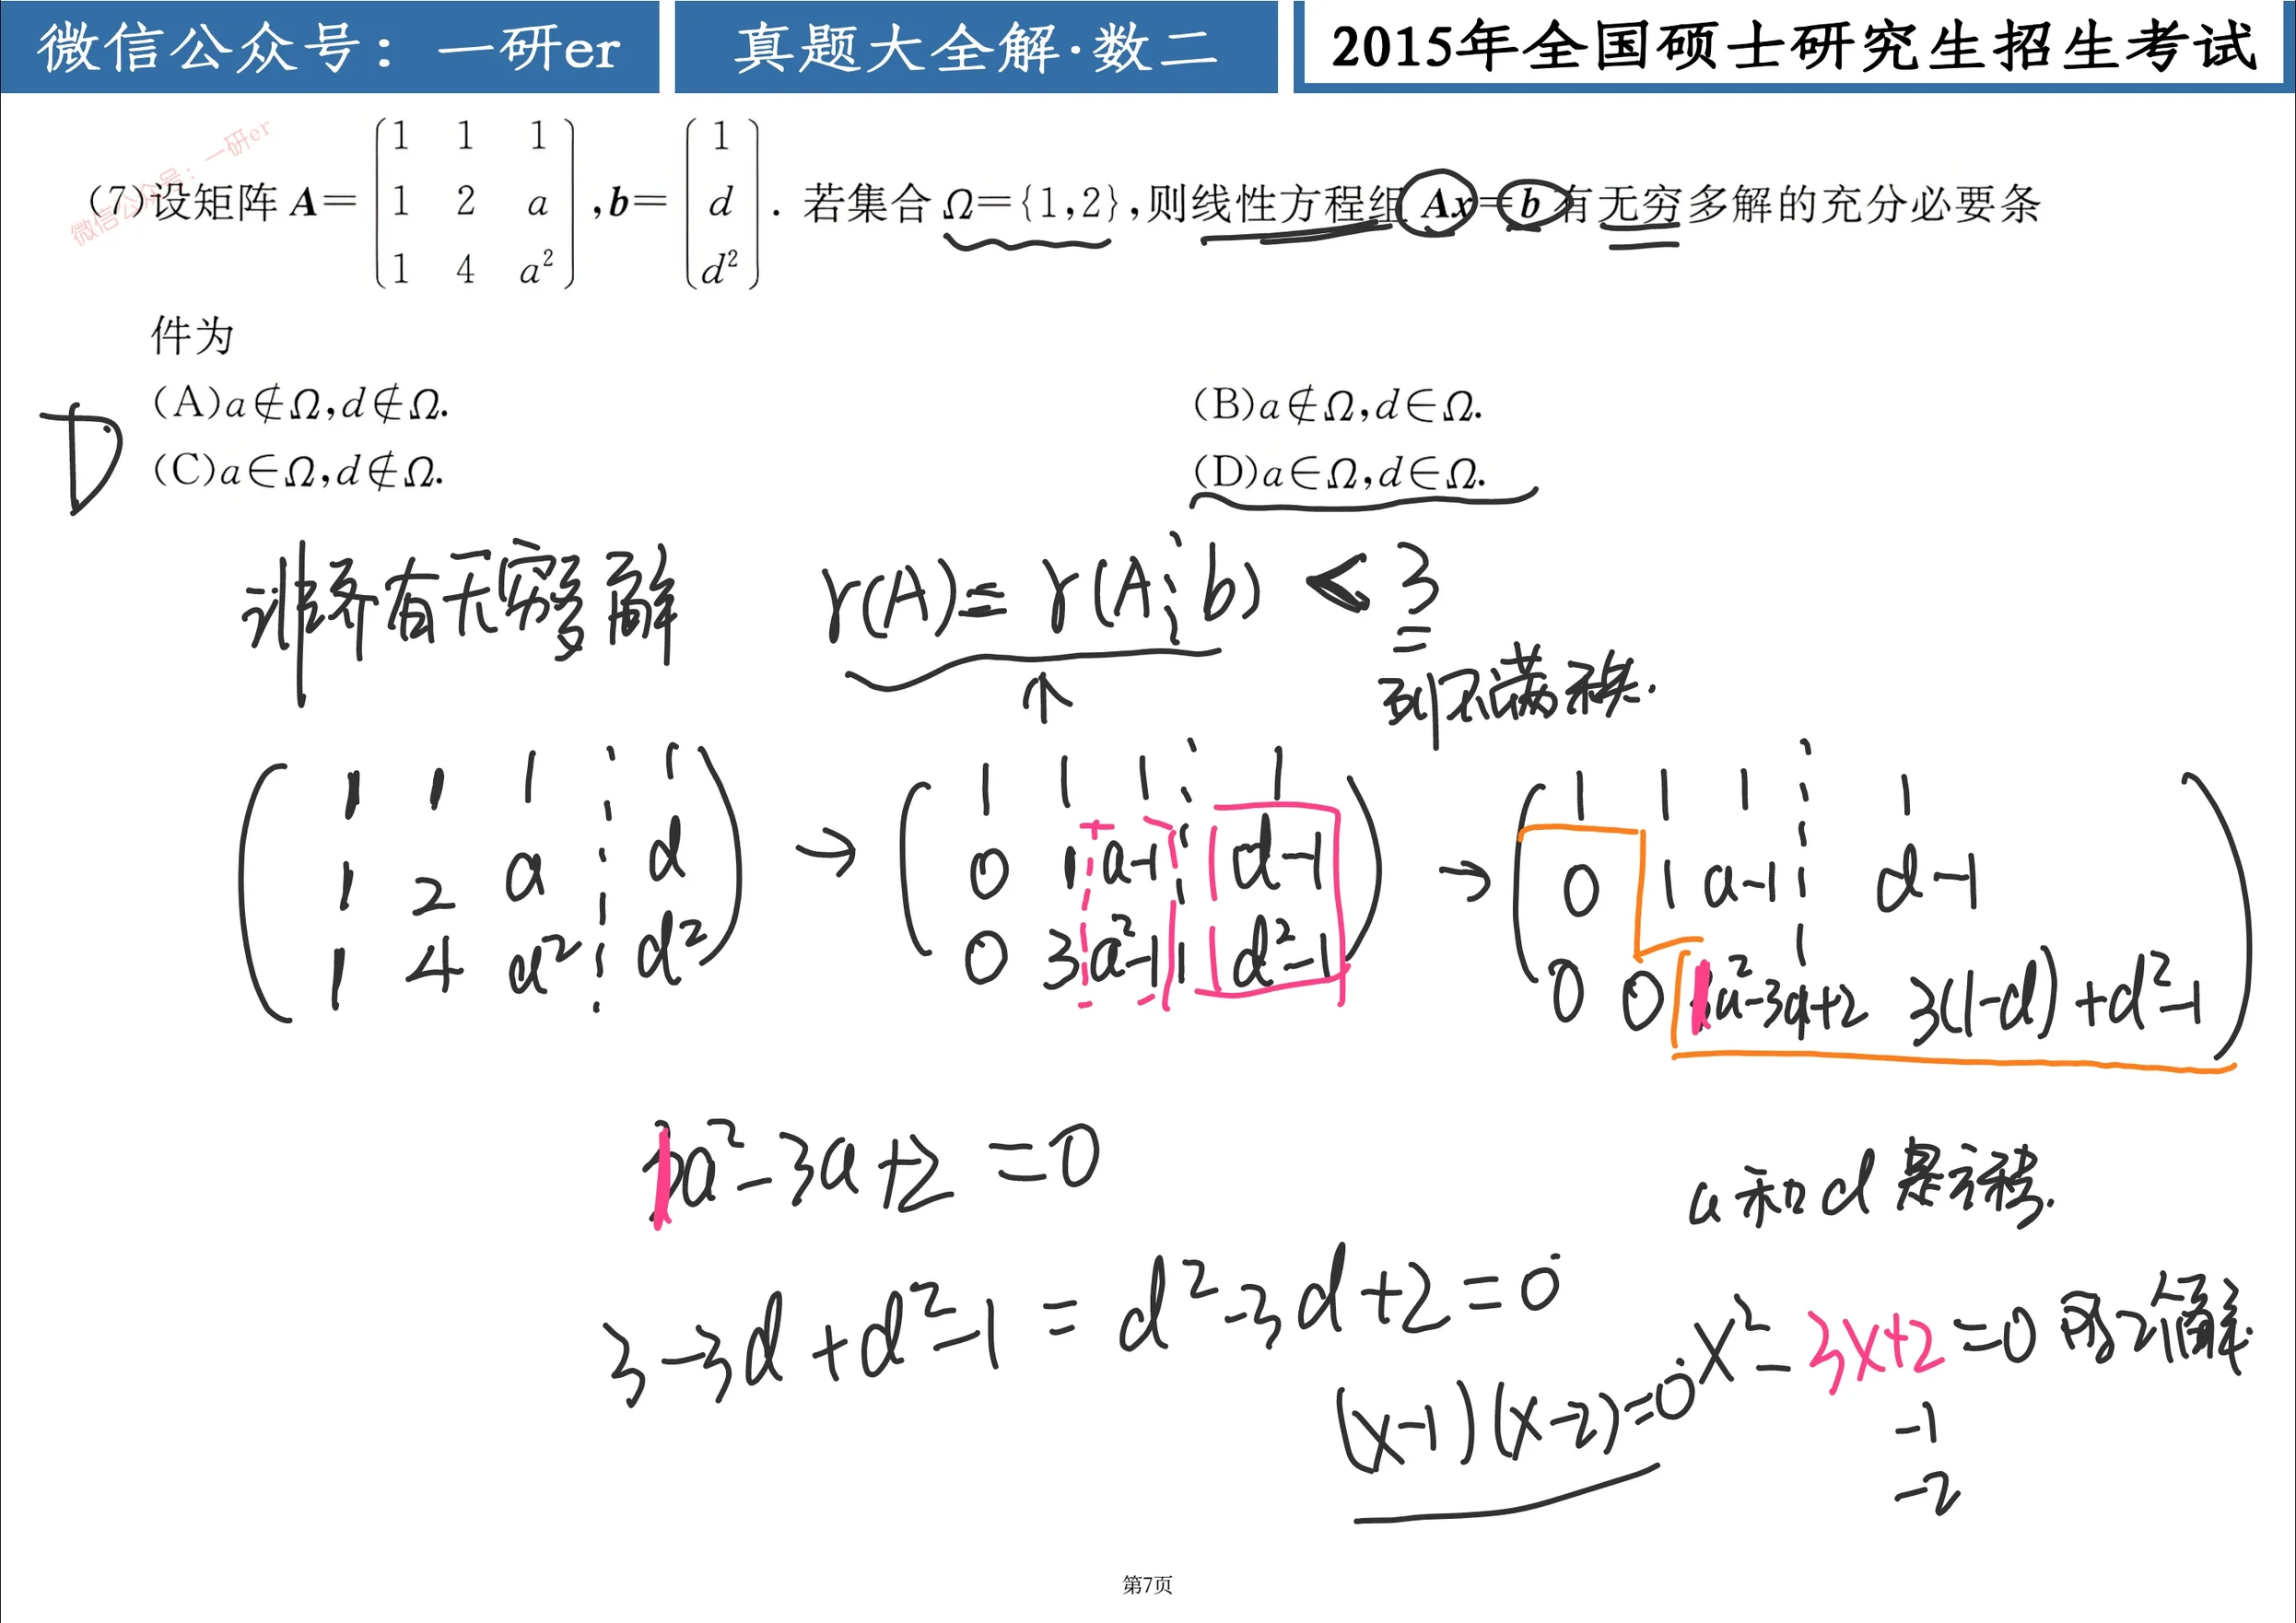 微信公众号：一研er 真题大全解·数二 2015年全国硕士研究生招生考试
微信公众号：一研er
(7)设矩阵 A=
1 1 1
1 2 a
1 4 a²
,b=
1
d
d²
. 若集合 Ω={1,2},则线性方程组 Ax=b 有无穷多解的充分必要条
件为
(A)a∉Ω,d∉Ω. (B)a∉Ω,d∈Ω.
D
(C)a∈Ω,d∉Ω. (D)a∈Ω,d∈Ω.
非齐有无穷多解 r(A)= r(A⋮b) < 3
列不满秩.
( 1 1 1 ⋮ 1
1 2 a ⋮ d
1 4 a² ⋮ d² )
→
( 1 1 1 ⋮ 1
0 1 a-1 ⋮ d-1
0 3 a²-1 ⋮ d²-1 )
→
( 1 1 1 ⋮ 1
0 1 a-1 ⋮ d-1
0 0 a²-3a+2 3(1-d)+d²-1 )
a²-3a+2 =0
a和d是方程.
3-3d+d²-1 = d²-3d+2=0
x²-3x+2=0 的2个解.
(x-1)(x-2)=0
-1
-2
第7页